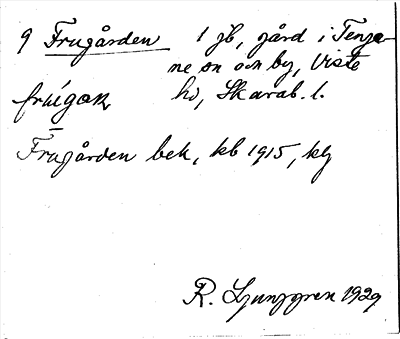 9 Frugården 1 jb, gård i Tenga-
ne sn och by, Viste
frúgaɳ hd, Skarab. l.
Frugården bek, kb 1915, kg
R. Ljunggren 1929